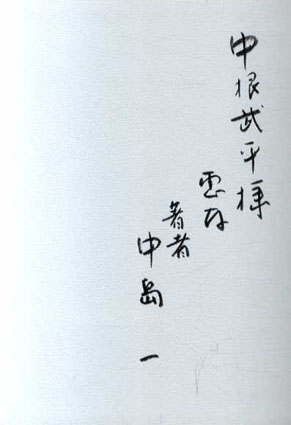 中根武平様
恵存
著者
中島 一